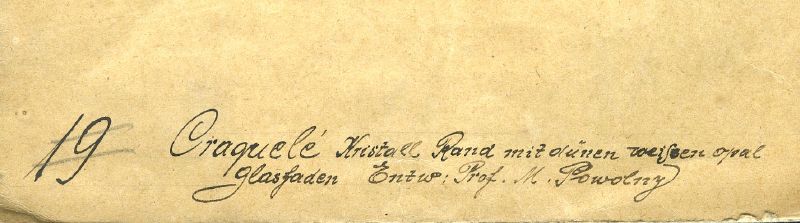 19 Craquelé Kristall Rand mit dünen weißen opal
Glasfaden Entw: Prof. M. Powolny